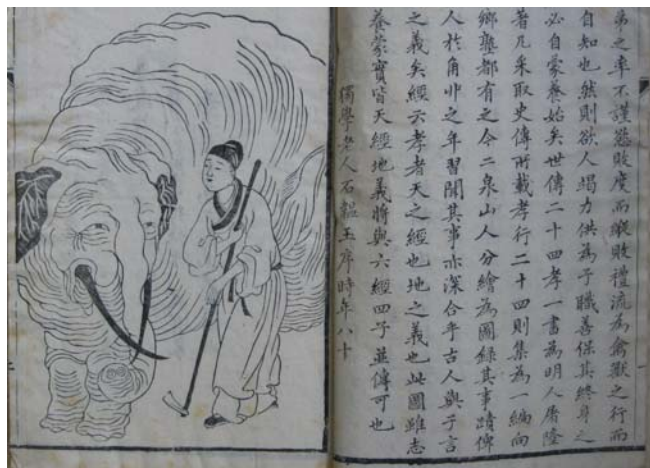 弟之率不謹慾敗度而縱敗禮流為禽獸之行而
自知也然則欲人竭力供為子職善保其終身之
必自蒙養始矣世傳二十四孝一書為明人屠隆
著凡采取史傳所載孝行二十四則集為一編向
鄉塾都有之今二泉山人分繪為圖錄其事蹟俾
人於角丱之年習聞其事亦深合乎古人與子言
之義矣經云孝者天之經也地之義也此圖雖志
養蒙實皆天經地義將與六經四子並傳可也
獨學老人石韞玉序時年八十